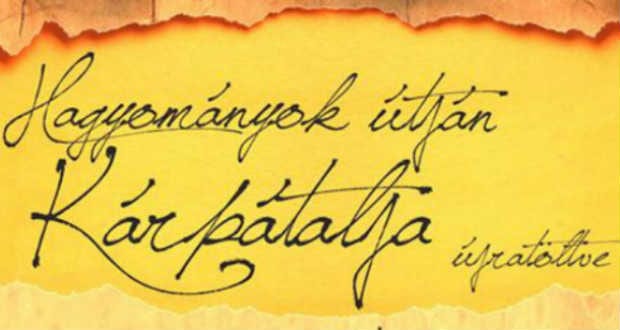 Hagyományok útján
Kárpátalja
újratöltve